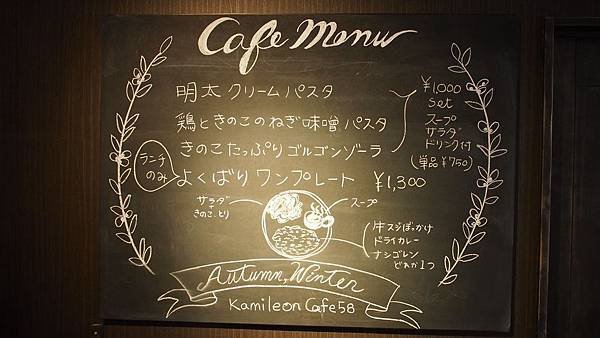 Cafe Menu
明太クリームパスタ
鶏ときのこのねぎ味噌パスタ
きのこたっぷりゴルゴンゾーラ
¥1,000
set
スープ
サラダ
ドリンク付
(単品¥750)
ランチ
のみ
よくばりワンプレート ¥1,300
サラダ
きのこ、とり
スープ
牛スジぶっかけ
ドライカレー
ナシゴレン
どれか1つ
Autumn, Winter
Kamileon Cafe58